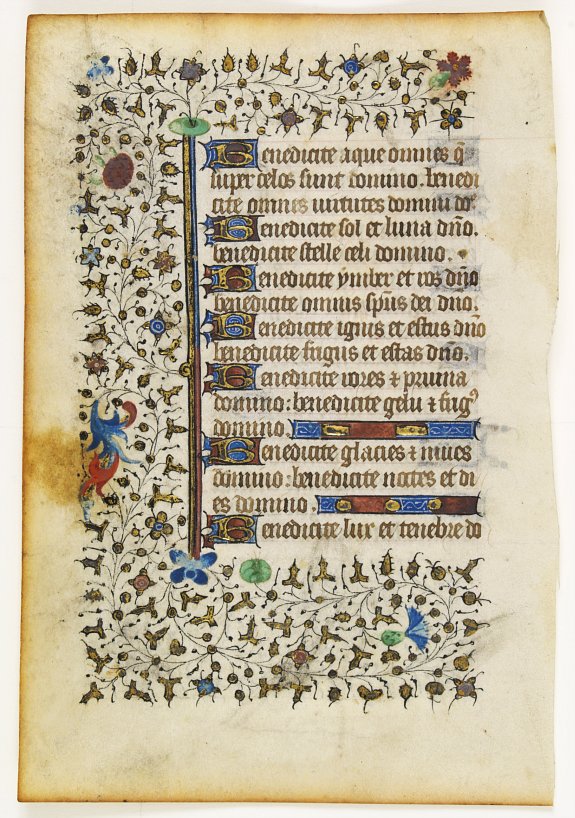 Benedicite aque omnes q̄
super celos sunt domino. benedi
cite omnes uirtutes domini do
Benedicite sol et luna dn̄o.
benedicite stelle celi domino.
Benedicite ymber et ros dn̄o
benedicite omnis sp̄us dei dn̄o.
Benedicite ignis et estus dn̄o
benedicite frigus et estas dn̄o.
Benedicite rores ⁊ pruina
domino: benedicite gelu ⁊ frigꝰ
domino.
Benedicite glacies ⁊ niues
domino: benedicite noctes et di
es domino.
Benedicite lux et tenebre do